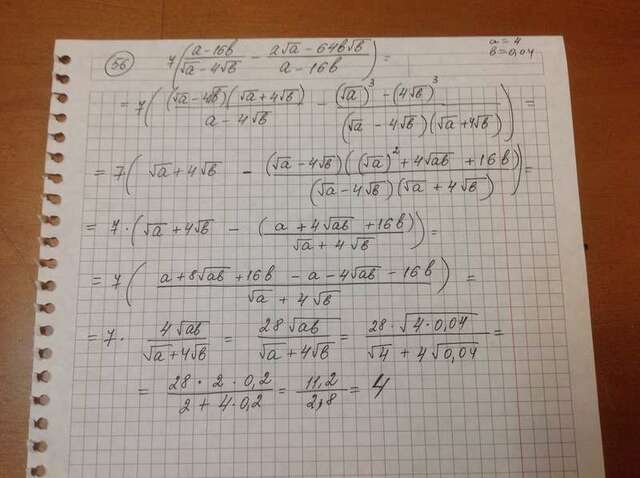 56 7((a-16b)/(√a-4√b) - (a√a-64b√b)/(a-16b)) =
a=4
b=0,04
= 7(((√a-4√b)(√a+4√b))/(a-4√b) - ((√a)³-(4√b)³)/((√a-4√b)(√a+4√b))) =
= 7(√a+4√b - ((√a-4√b)((√a)²+4√ab+16b))/((√a-4√b)(√a+4√b))) =
= 7·(√a+4√b - (a+4√ab+16b)/(√a+4√b)) =
= 7((a+8√ab+16b-a-4√ab-16b)/(√a+4√b)) =
= 7·(4√ab)/(√a+4√b) = (28√ab)/(√a+4√b) = (28·√4·0,04)/(√4+4√0,04) =
= (28·2·0,2)/(2+4·0,2) = 11,2/2,8 = 4